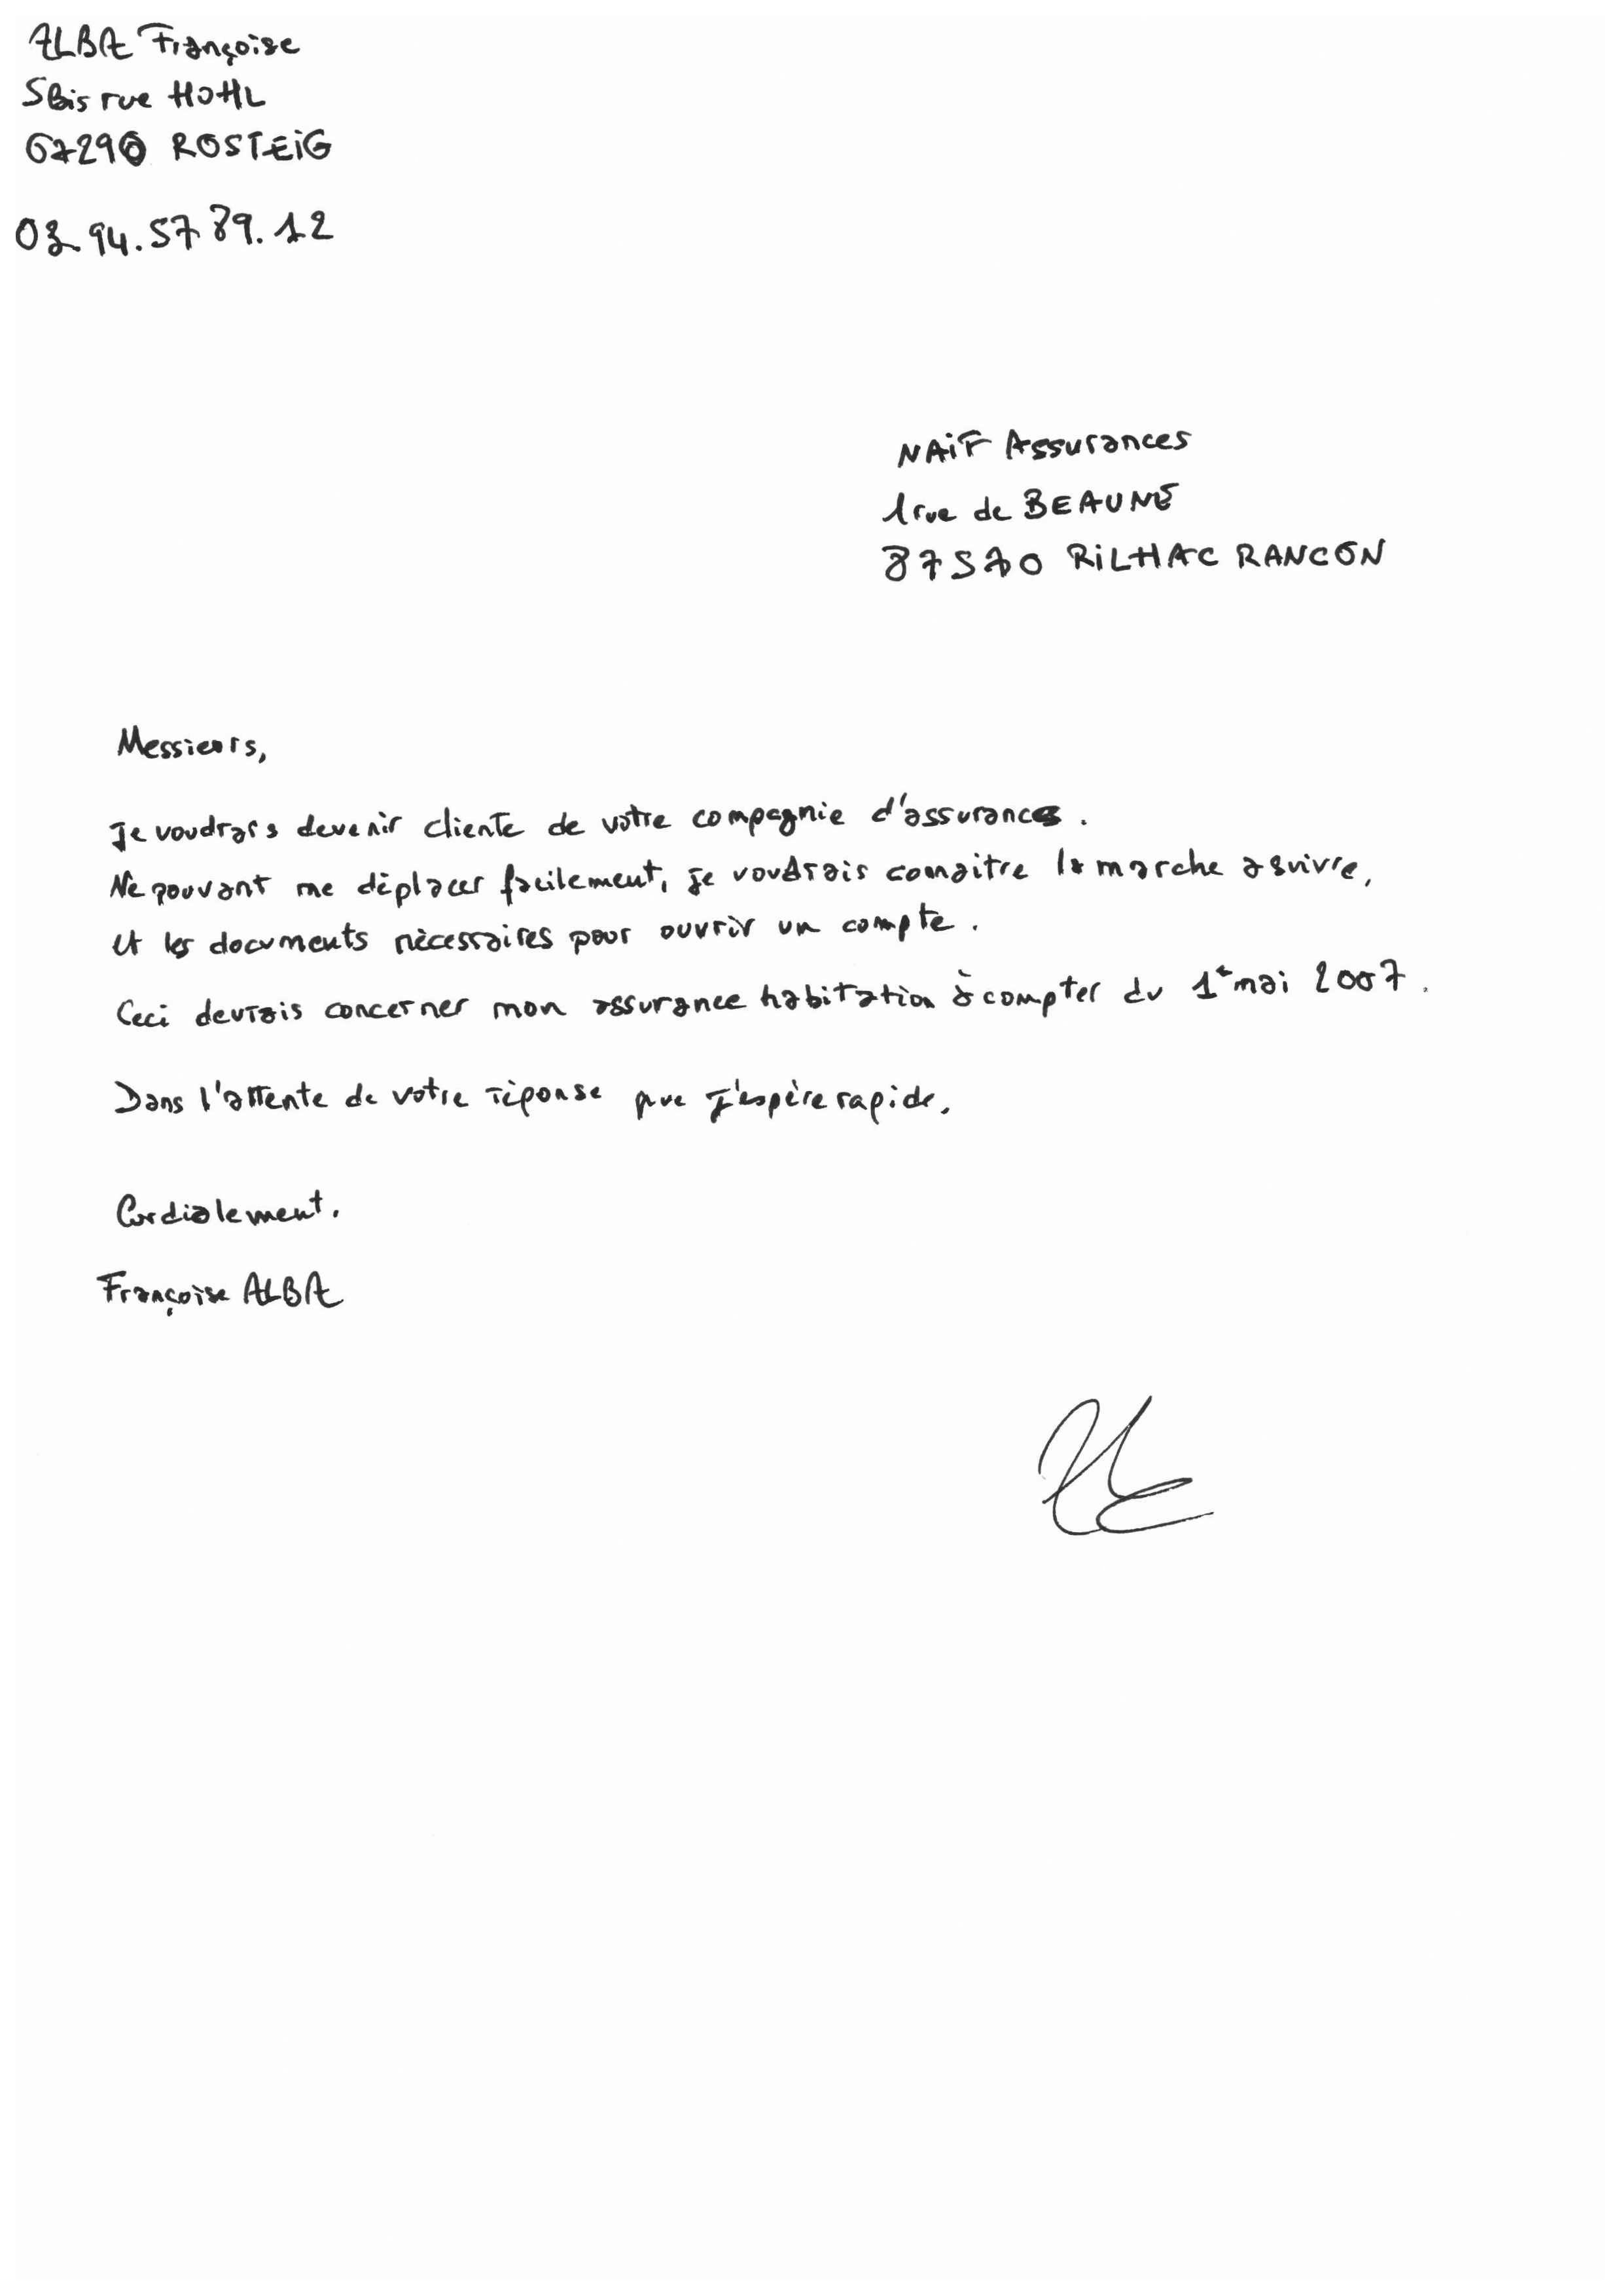 ALBA Françoise
5bis rue HOHL
67290 ROSTEIG
03.94.57 89.12
NAiF Assurances
1 rue de BEAUNE
87570 RiLHAC RANCON
Messieurs,
Je voudrais devenir cliente de votre compagnie d'assurances.
Ne pouvant me déplacer facilement, je voudrais connaitre la marche a suivre,
et les documents nécessaires pour ouvrir un compte.
Ceci devrais concerner mon assurance habitation à compter du 1er mai 2007.
Dans l'attente de votre réponse que j'espère rapide.
Cordialement.
Françoise ALBA